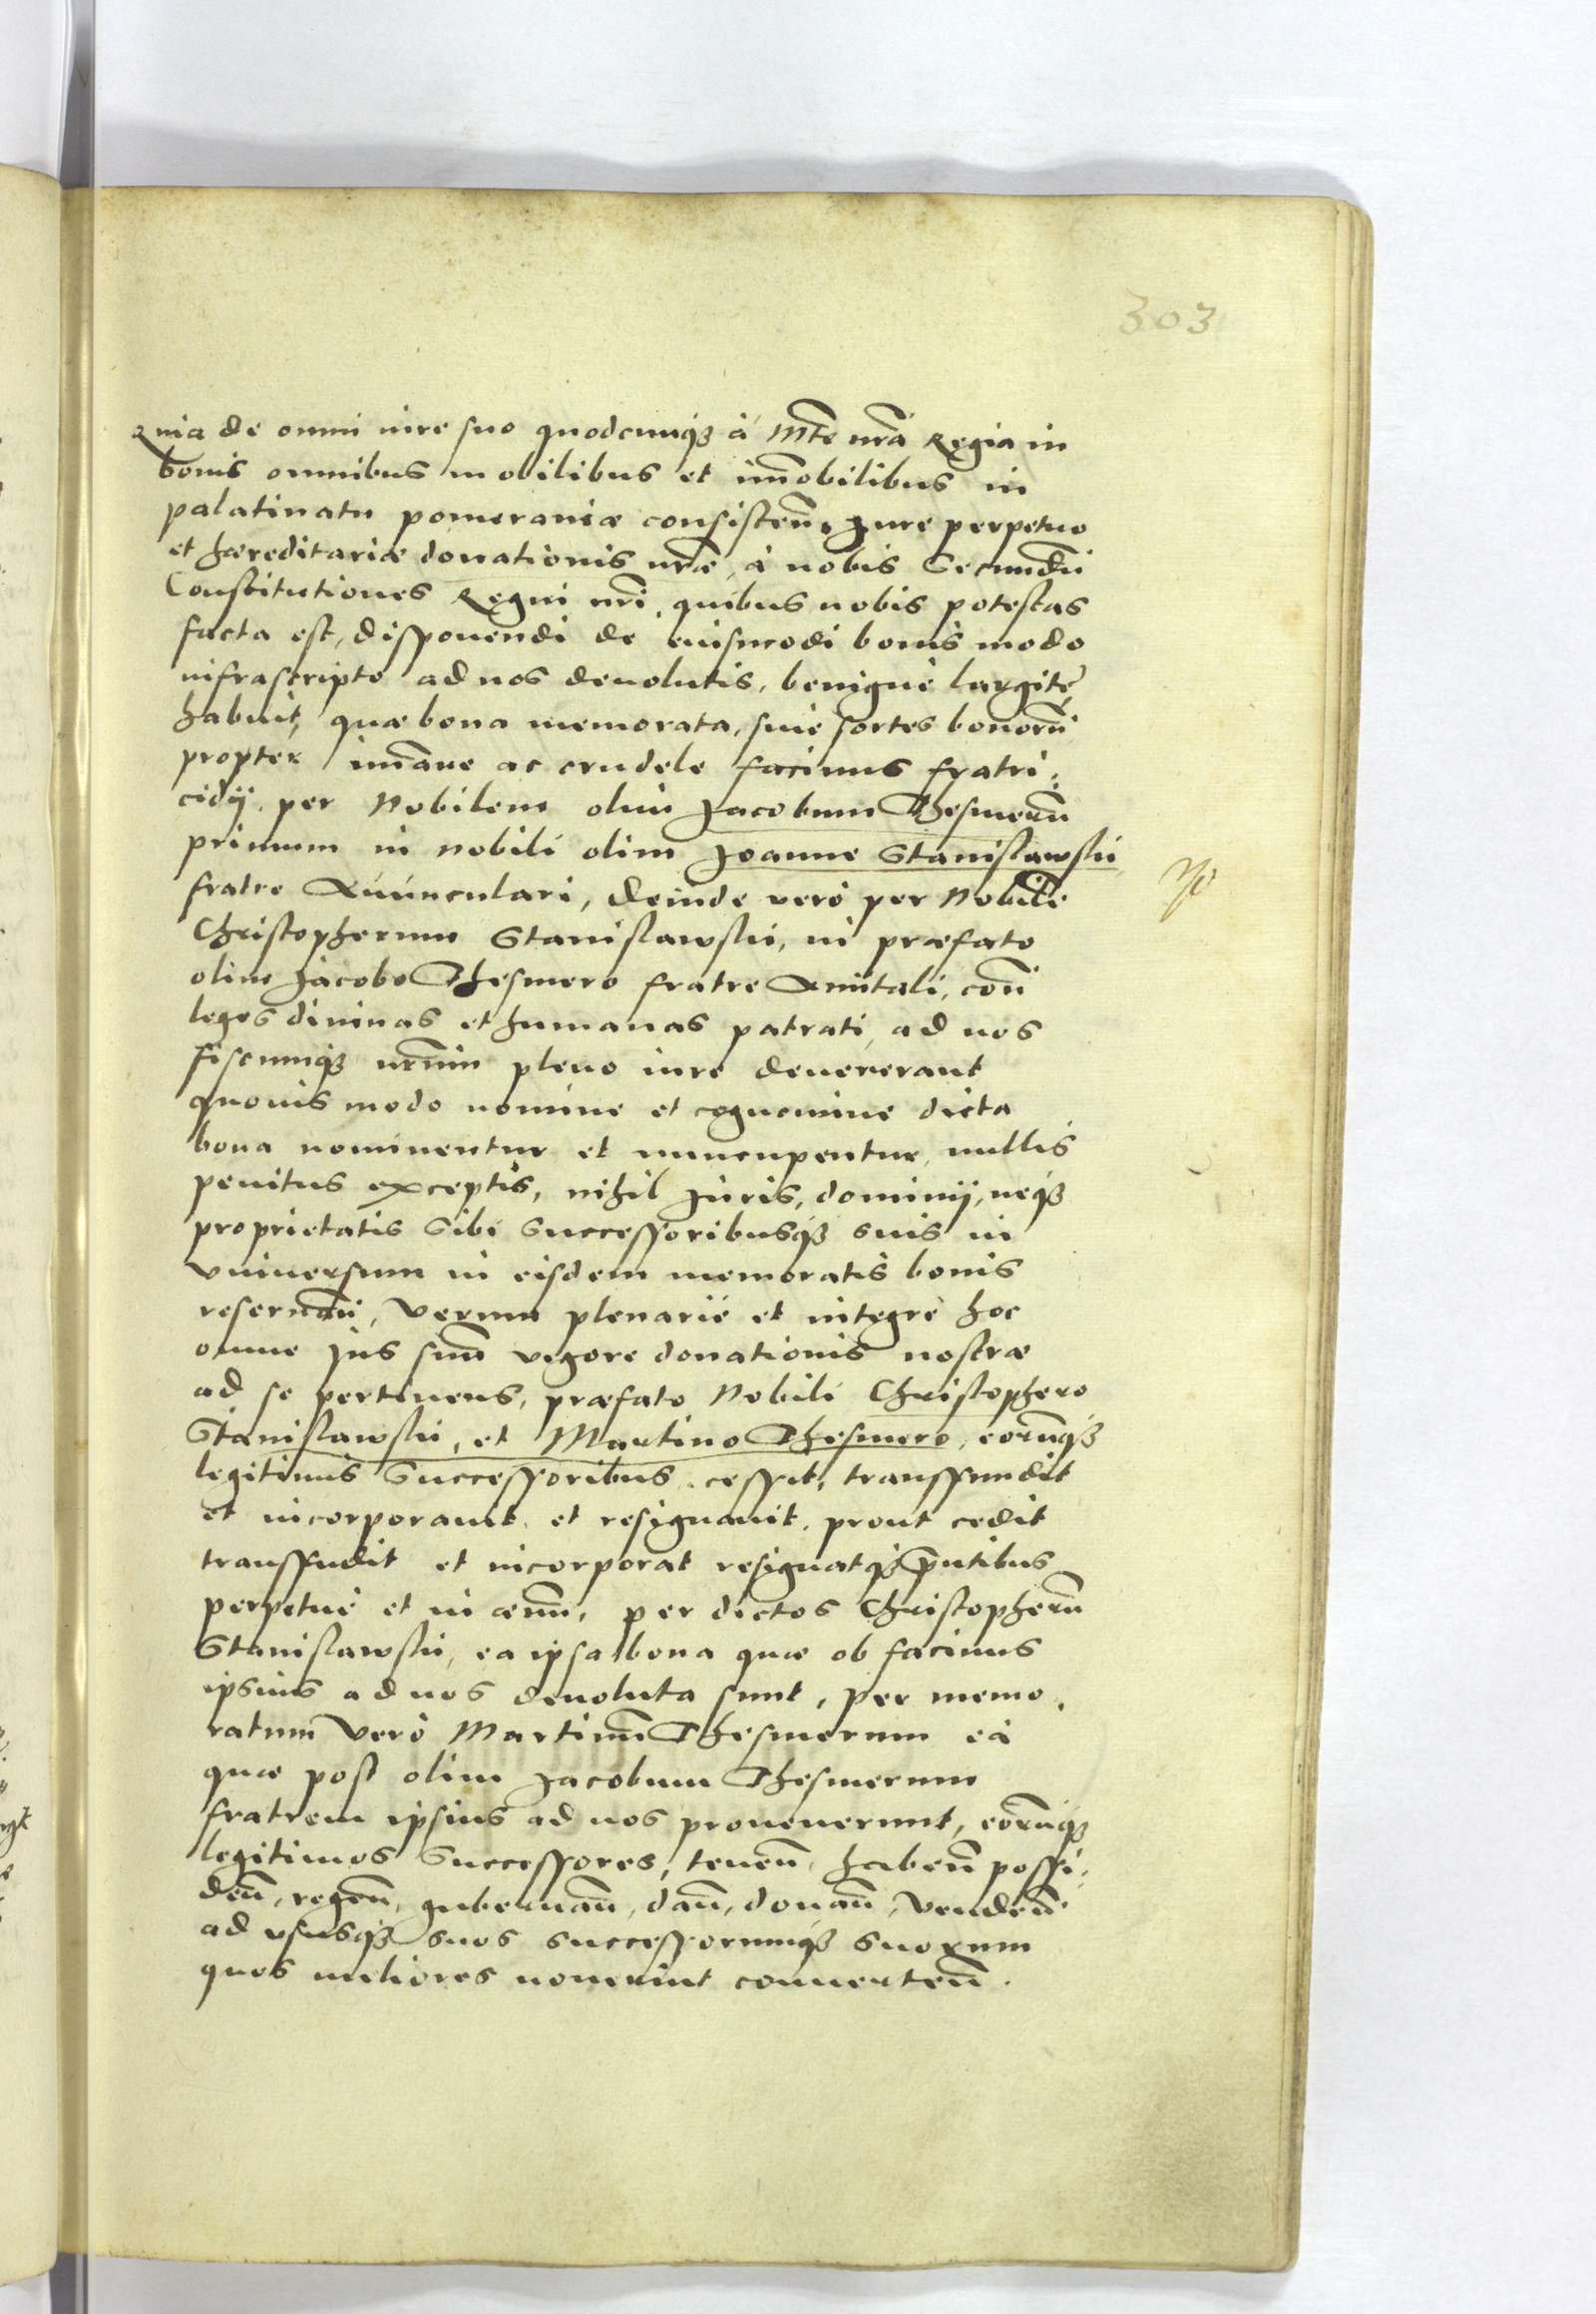 303
Quia de omni iure suo quodcunq3 à Mte nrā Regia in
bonis omnibus mobilibus et im̄obilibus in
palatinatu pomeraniæ consisteñ, Jure perpetuo
et hæreditariæ donationis nræ, à nobis Secundū
Constitutiones Regni nri, quibus nobis potestas
facta est, disponendi de eiusmodi bonis modo
infrascripto ad nos deuolutis, benignè largitē
habuit, quæ bona memorata, siue sortes bonorū
propter im̄ane ac crudele facinus fratri:
cidij, per Nobilem olim Jacobum Thesmerū
primum in nobili olim Joanne Stanislawski
fratre Auunculari, deinde verò per Nobilē
Christopherum Stanislawski, in præfato
olim Jacobo Thesmero fratre Amitali, coñ
leges diuinas et humanas patrati, ad nos
fiscumq3 nrum pleno iure deuenerant
quouis modo nomine et cognomine dicta
bona nominentur et nuncupentur, nullis
penitus exceptis, nihil Juris, dominij, neq3
proprietatis Sibi Successoribusq3 suis in
vniuersum in eisdem memoratis bonis
reseruañ, Verum plenariè et integrè hoc
omne Jus suū vigore donationis nostræ
ad se pertinens, præfato Nobili Christophero
Stanislawski, et Martino Thesmero, eorūq3
legitimis Successoribus cessit, transfundit
et incorporauit, et resignauit, prout cedit
transfudit et incorporat resignatq3 p̄ntibus
perpetuè et in æuū, per dictos Christopherū
Stanislawski, ea ipsa bona quæ ob facinus
ipsius ad nos deuoluta sunt, per memo,
ratum verò Martinū Thesmerum ea
quæ post olim Jacobum Thesmerum
fratrem ipsius ad nos prouenerunt, eorūq3
legitimos Successores, teneñ, habeñ possi:
deñ, regeñ, gubernañ, dañ, donañ, vendeñ
ad vsusq3 suos successorumq3 suorum
quos meliores nouerint conuerteñ.